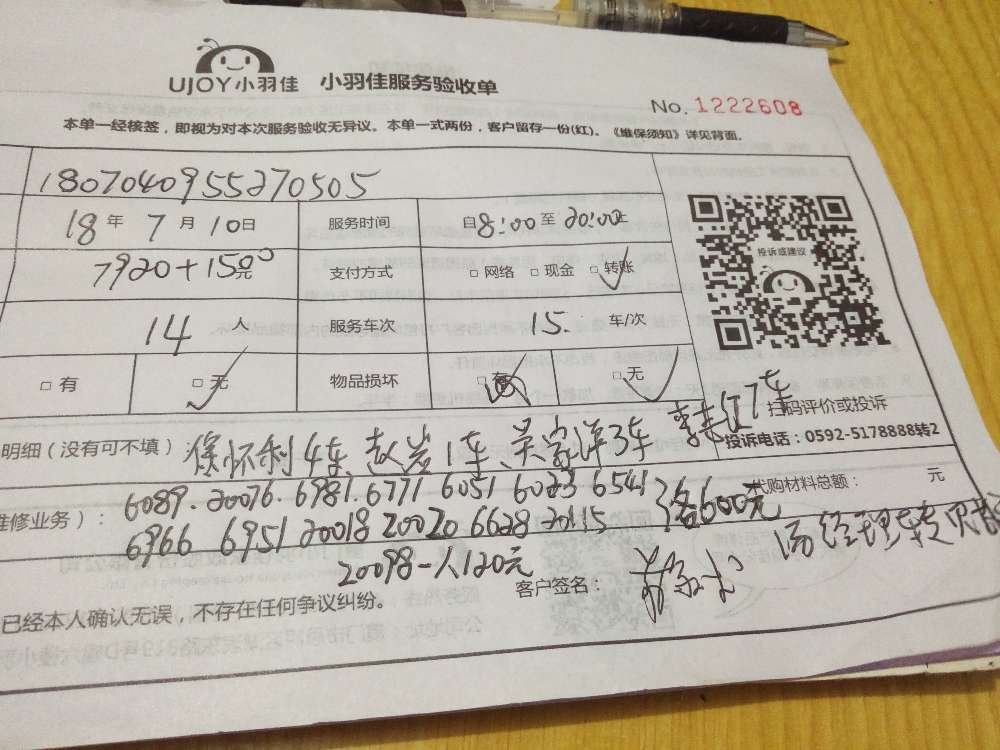 UJOY小羽佳 小羽佳服务验收单
No. 1222608
本单一经核签，即视为对本次服务验收无异议。本单一式两份，客户留存一份(红)。《维保须知》详见背面。
1807040955270505
18 年 7 月 10 日 服务时间 自 8:00 至 20:00止
7920+1500元 支付方式 □ 网络 □ 现金 □ 转账
投诉或建议
14 人 服务车次 15. 车/次
□ 有 □ 无 物品损坏 □ 有 □ 无
扫码评价或投诉
投诉电话：0592-5178888转2
明细（没有可不填）： 徐怀利4车、赵岩1车、吴家洋3车 李志红7车
维修业务）： 6089.20076.6981.6771 6051 6023 6541 代购材料总额： 元
6966 6951 20018 20020 6628 20115 各600元
20098一人120元
客户签名： 汤经理转
已经本人确认无误，不存在任何争议纠纷。